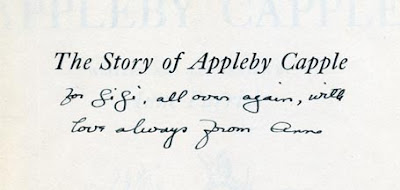 The Story of Appleby Capple
for Gigi, all over again, with
love always from Anne